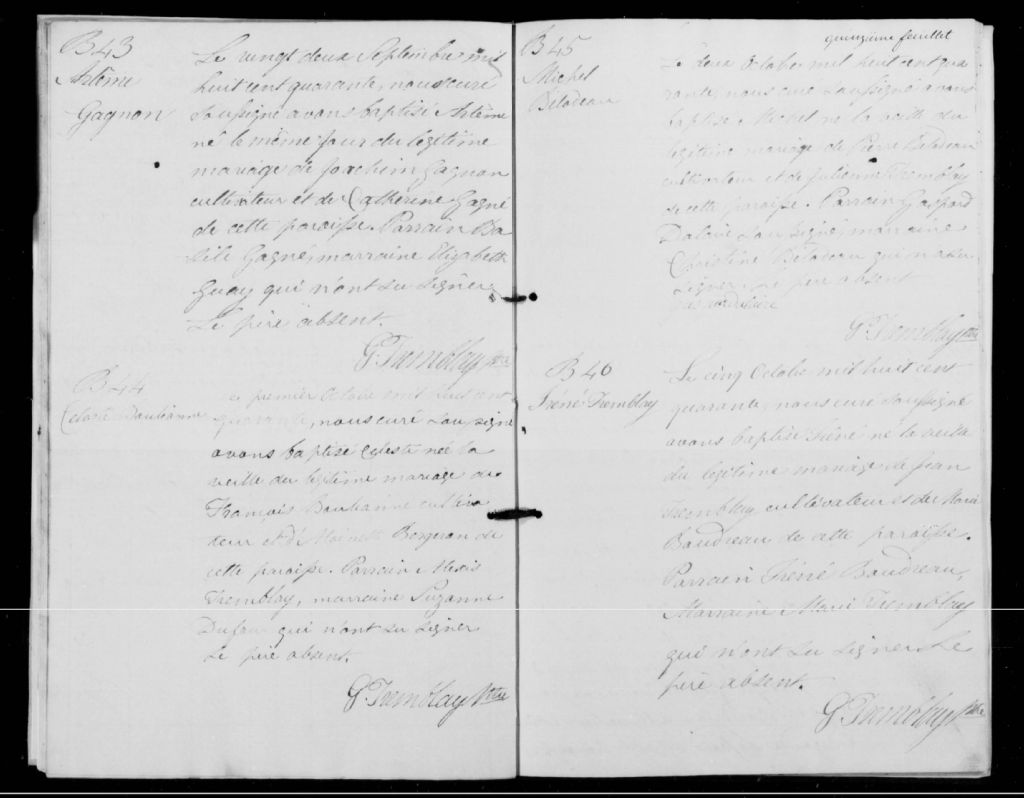 B43
Artême
Gagnon
Le vingt deux Septembre mil
huit cent quarante, nous curé
soussigné avons baptisé Artême
né le même jour du légitime
mariage de Joachim Gagnon
cultivateur et de Catherine Gagné
de cette paroisse. Parrain Ba
sile Gagné, marraine Elizabeth
Guay qui n'ont su signer
Le père absent.
G. Tremblay Ptre
B44
Celeste
Le premier Octobre mil huit cent
quarante, nous curé soussigné
avons baptisé Celeste née la
veille du légitime mariage de
François cultiva
teur et d' Bergeron de
cette paroisse. Parrain Alexis
Tremblay, marraine Suzanne
Dufour qui n'ont su signer
Le père absent.
G. Tremblay Ptre
quinzième feuillet
B45
Michel
Bilodeau
Le deux Octobre mil huit cent qua
rante, nous curé soussigné avons
baptisé Michel né la veille du
légitime mariage de Pierre Bilodeau
cultivateur et de Julienne Tremblay
de cette paroisse. Parrain Gaspard
soussigné, marraine
Christine Bilodeau qui n'a su
signer. Le père absent
G. Tremblay Ptre
B46
Iréné Tremblay
Le cinq Octobre mil huit cent
quarante, nous curé soussigné
avons baptisé Iréné né la veille
du légitime mariage de Jean
Tremblay cultivateur et de Marie
Baudreau de cette paroisse.
Parrain Iréné Baudreau,
Marraine Marie Tremblay
qui n'ont su signer. Le
père absent.
G. Tremblay Ptre